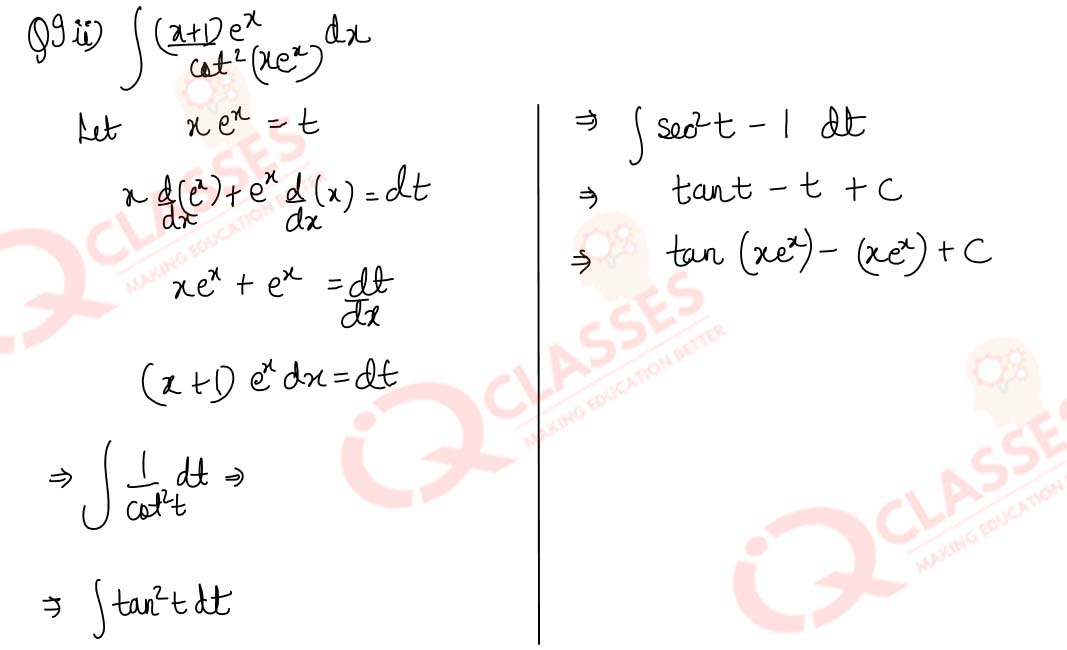 Q9 ii) ∫ (x+1)e^x / cot²(xe^x) dx
Let x e^x = t
x d/dx(e^x) + e^x d/dx(x) = dt
xe^x + e^x = dt/dx
(x+1) e^x dx = dt
⇒ ∫ 1/cot²t dt ⇒
⇒ ∫ tan²t dt
⇒ ∫ sec²t - 1 dt
⇒ tan t - t + C
⇒ tan (xe^x) - (xe^x) + C
CLASSES
MAKING EDUCATION BETTER
CLASSES
MAKING EDUCATION BETTER
CLASSES
MAKING EDUCATION